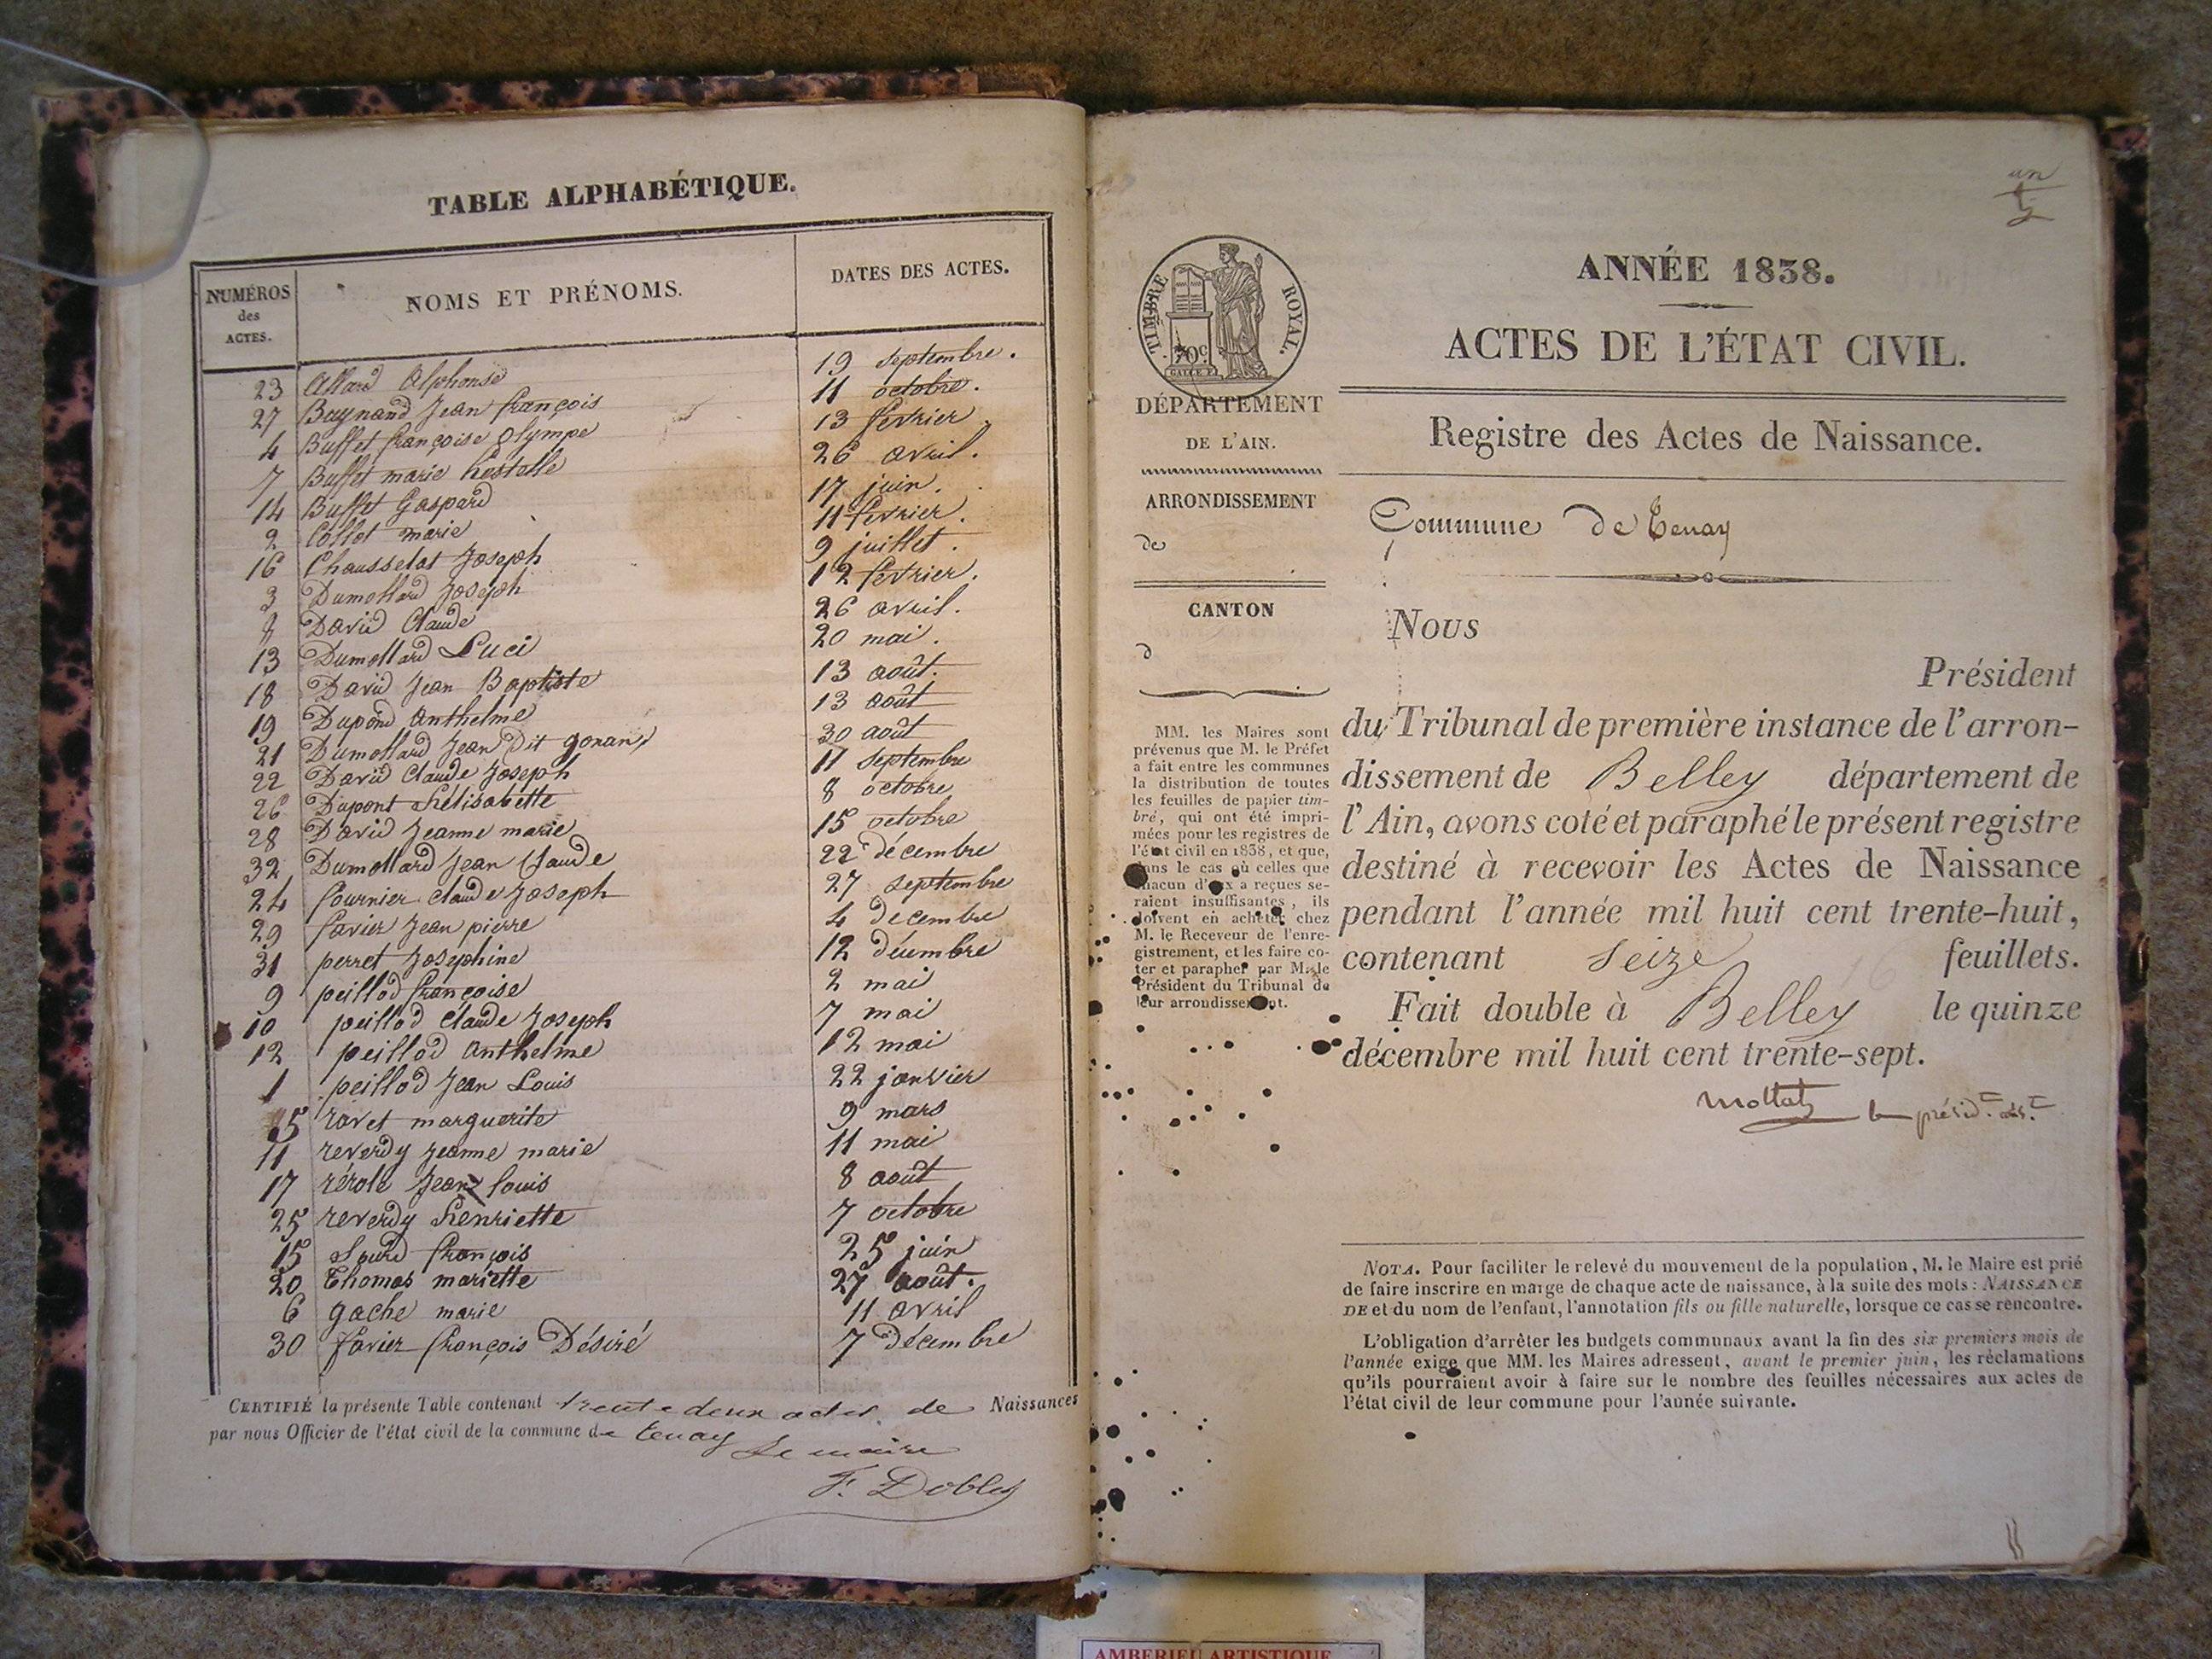 TABLE ALPHABÉTIQUE.
NUMÉROS des ACTES. NOMS ET PRÉNOMS. DATES DES ACTES.
23 Allard Alphonse 19 septembre.
27 Baynand Jean françois 11 octobre.
4 Buffet françoise olympe 13 février
7 Buffet marie 26 avril.
14 Buffet Gaspard 17 juin.
2 Collet marie 11 février.
16 Chausselat Joseph 9 juillet.
3 Dumollard Joseph 12 février.
David Claude 26 avril.
13 Dumollard Luci 20 mai.
18 David Jean Baptiste 13 août.
19 Dupond Anthelme 13 août
21 Dumollard Jean Dit 30 août
22 David Claude Joseph 11 septembre
26 Dupont hélisabette 8 octobre
28 David Jeanne marie 15 octobre
32 Dumollard Jean Claude 22 décembre
24 fournier Claude Joseph 27 septembre
29 favier Jean pierre 4 decembre
31 perret Joséphine 12 décembre
9 peillod françoise 2 mai
10 peillod Claude Joseph 7 mai
12 peillod Anthelme 12 mai
1 peillod Jean Louis 22 janvier
5 ravet marguerite 9 mars
11 reverdy Jeanne marie 11 mai
17 rérole Jean louis 8 août
25 reverdy henriette 7 octobre
15 Sourd françois 25 juin
20 Thomas mariette 27 août.
6 gache marie 11 avril
30 favier françois Désiré 7 décembre
CERTIFIÉ la présente Table contenant trente deux actes de Naissances
par nous Officier de l'état civil de la commune de tenay Le maire
F. Dobley
un
TIMBRE ROYAL.
70c
DÉPARTEMENT
DE L'AIN.
ARRONDISSEMENT
de
CANTON
d
MM. les Maires sont
prévenus que M. le Préfet
a fait entre les communes
la distribution de toutes
les feuilles de papier tim-
bré, qui ont été impri-
mées pour les registres de
l'état civil en 1838, et que,
dans le cas où celles que
chacun d'eux a reçues se-
raient insuffisantes, ils
doivent en acheter chez
M. le Receveur de l'enre-
gistrement, et les faire co-
ter et parapher par M. le
Président du Tribunal de
leur arrondissement.
ANNÉE 1838.
ACTES DE L'ÉTAT CIVIL.
Registre des Actes de Naissance.
Commune de Tenay
Nous
Président
du Tribunal de première instance de l'arron-
dissement de Belley département de
l'Ain, avons coté et paraphé le présent registre
destiné à recevoir les Actes de Naissance
pendant l'année mil huit cent trente-huit,
contenant seize feuillets.
Fait double à Belley le quinze
décembre mil huit cent trente-sept.
NOTA. Pour faciliter le relevé du mouvement de la population, M. le Maire est prié
de faire inscrire en marge de chaque acte de naissance, à la suite des mots : NAISSANCE
DE et du nom de l'enfant, l'annotation fils ou fille naturelle, lorsque ce cas se rencontre.
L'obligation d'arrêter les budgets communaux avant la fin des six premiers mois de
l'année exige que MM. les Maires adressent, avant le premier juin, les réclamations
qu'ils pourraient avoir à faire sur le nombre des feuilles nécessaires aux actes de
l'état civil de leur commune pour l'année suivante.
AMBERIEU ARTISTIQUE